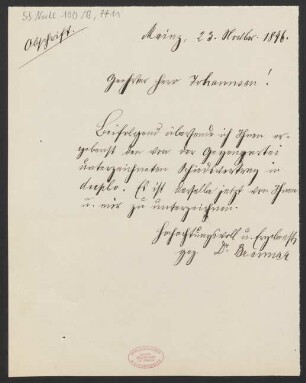 Abschrift.
Mainz, 23. Novbr. 1896.
Geehrter Herr Johannsen!
Beifolgend übersende ich Ihnen er-
gebenst den von der Gegenpartei
unterzeichneten Schiedsvertrag in
duplo. Es ist derselbe jetzt von Ihnen
u. mir zu unterzeichnen.
Hochachtungsvoll u. Ergebenst
gez. Dr.